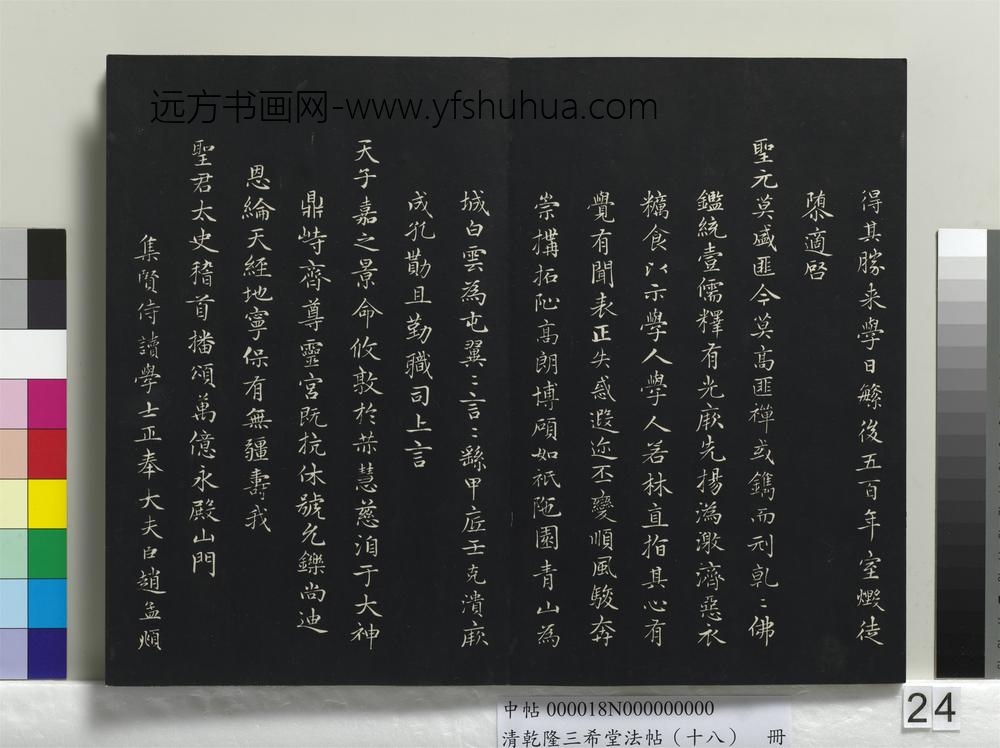 远方书画网-www.yfshuhua.com
得其勝来學日繇後五百年室燬徒
隳適啓
聖元莫盛匪今莫髙匪禅或鐫而刓乹〻佛
鑑統壹儒釋有光厥先揚為澂濟惡衣
糲食以示學人學人若林直指其心有
覺有聞表正失惑遐迩丕變順風駿奔
崇搆拓阤髙朗博碩如祇陁園青山為
城白雲為屯翼〻言〻繇甲庢壬克潰厥
成孔勤且勤職司上言
天子嘉之景命攸敦於荣慧慈洎于大神
鼎峙齊尊靈宮既抗休號允鑠尚迪
恩綸天經地寧保有無疆壽我
聖君太史稽首播頌萬億永殿山門
集賢侍讀學士正奉大夫臣趙孟頫
中帖 000018N000000000
清乾隆三希堂法帖（十八） 冊
24